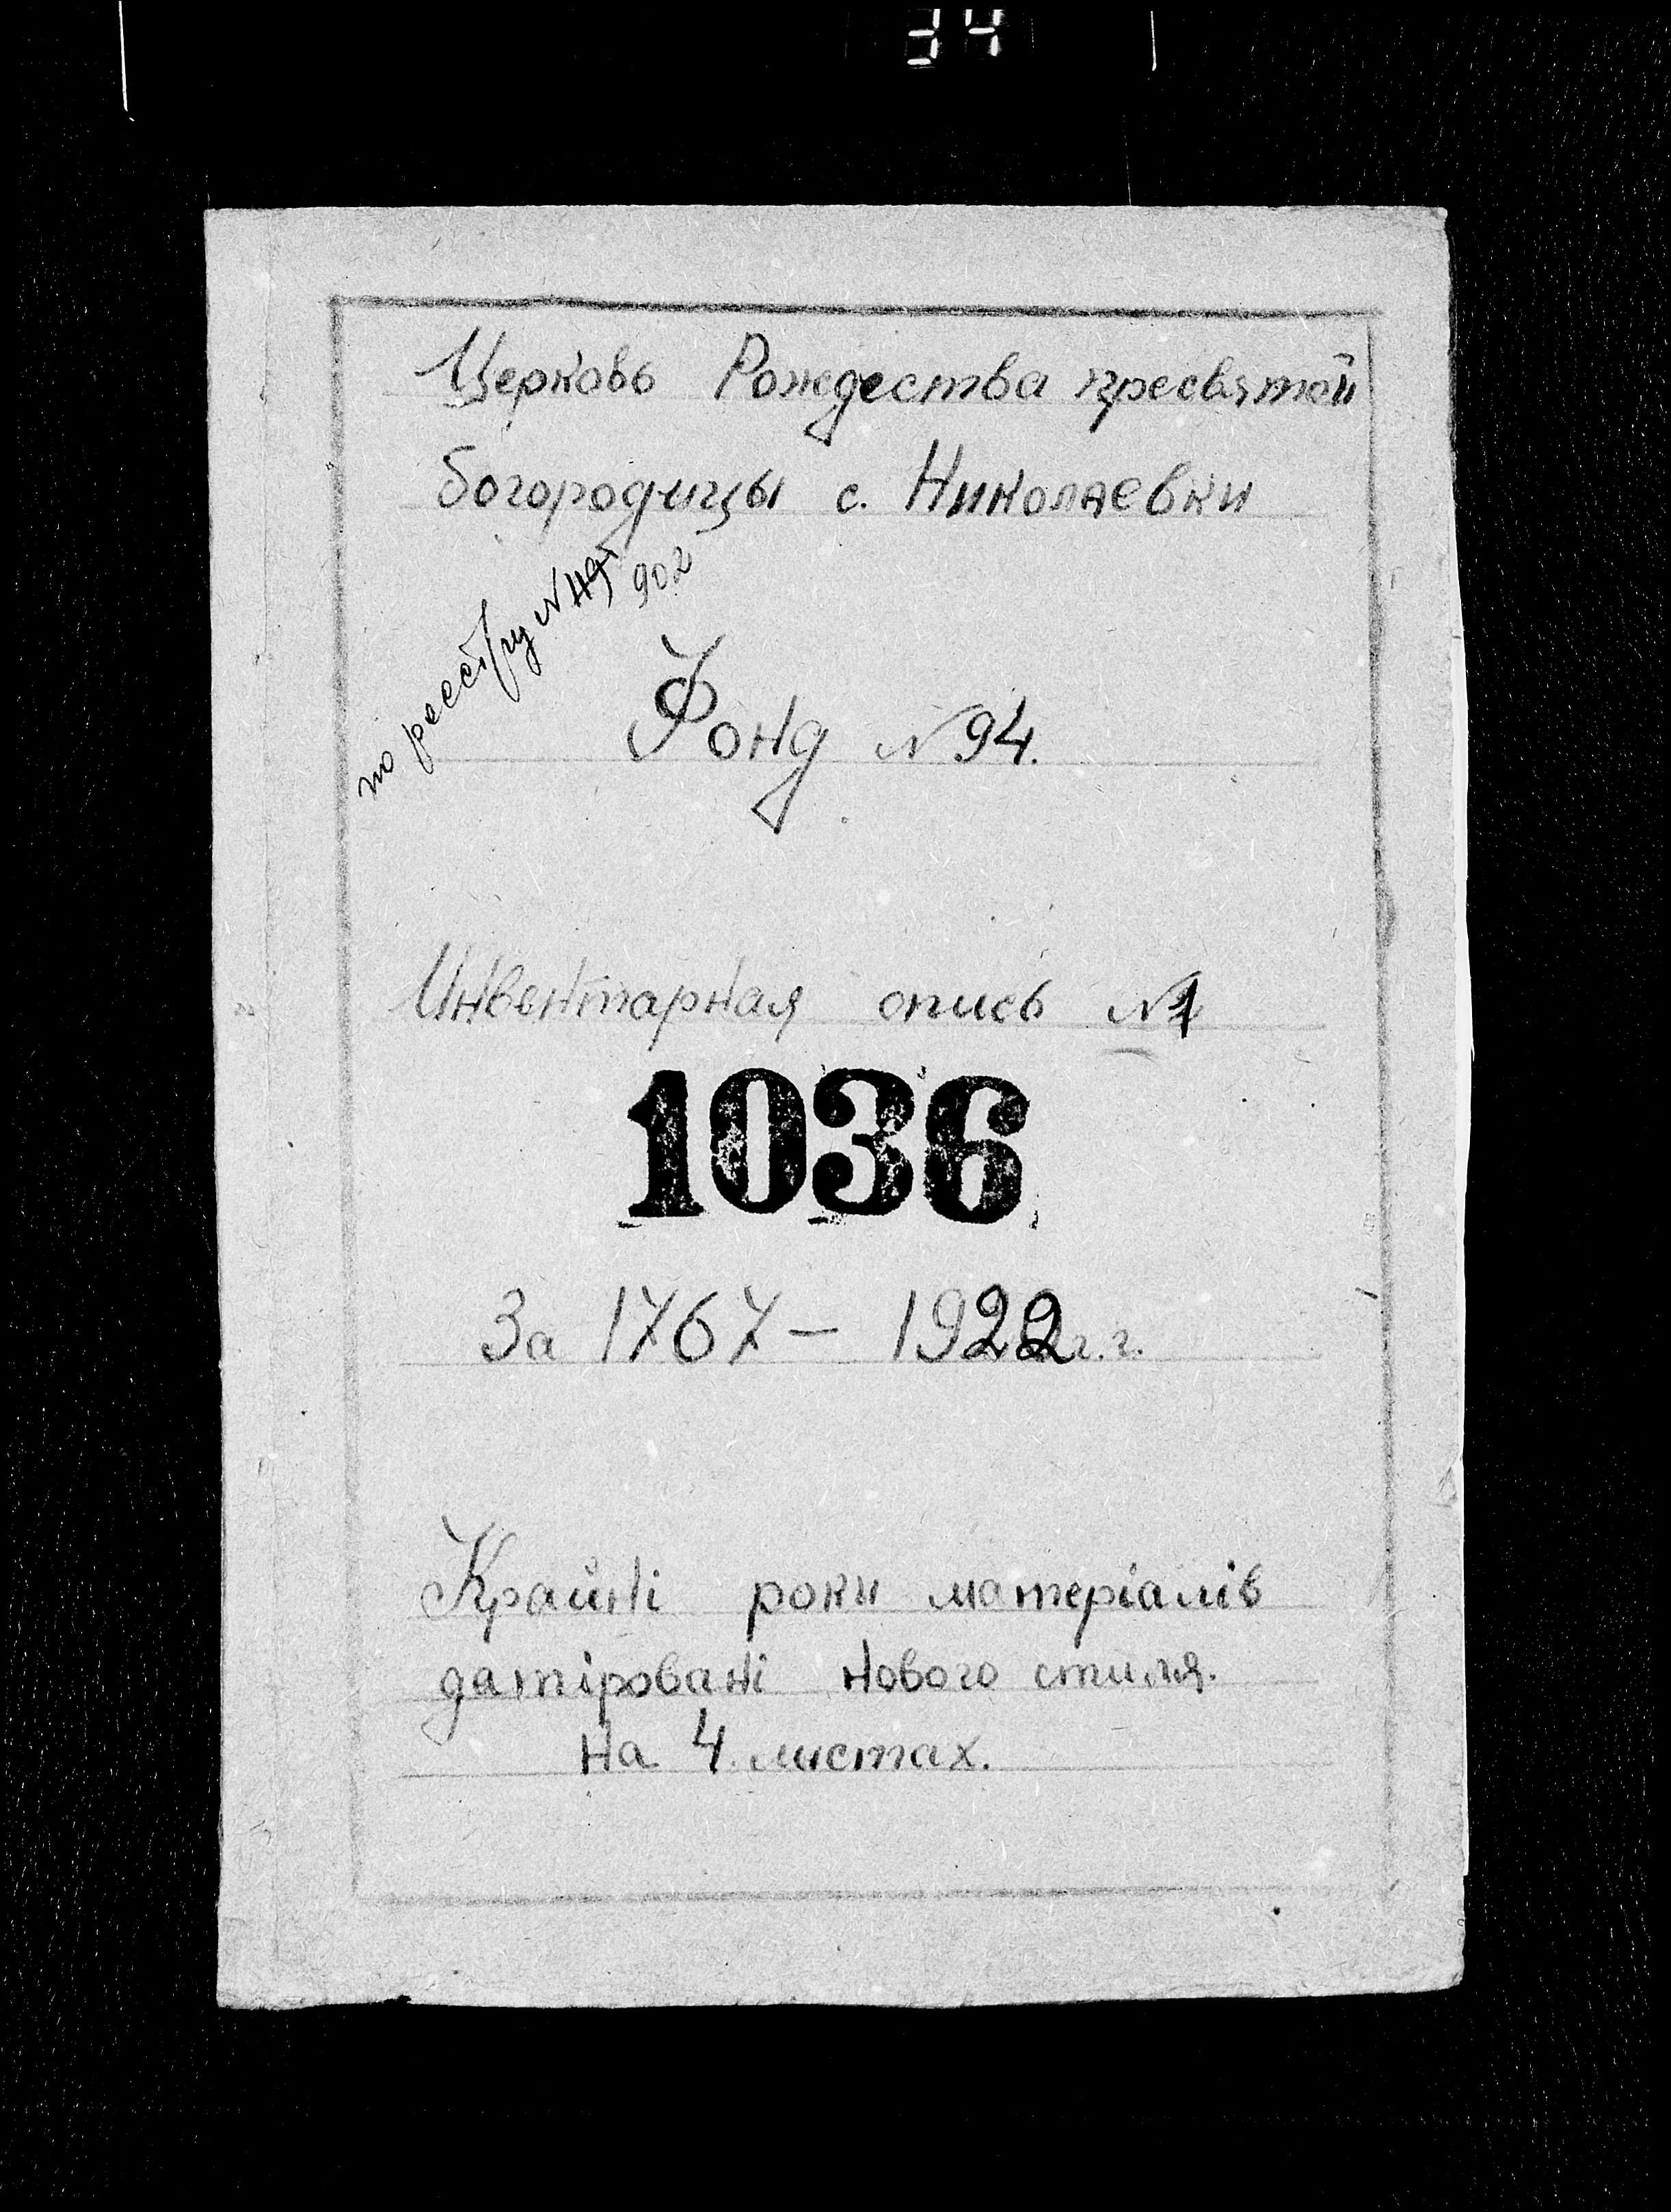 34
Церковь Рождества пресвятой
богородицы с. Николаевки
по реестру N 49
902
Фонд N 94.
Инвентарная опись N1
1036
За 1767 – 1922 г.г.
Крайні роки матеріалів
датіровані нового стиля.
На 4 листах.